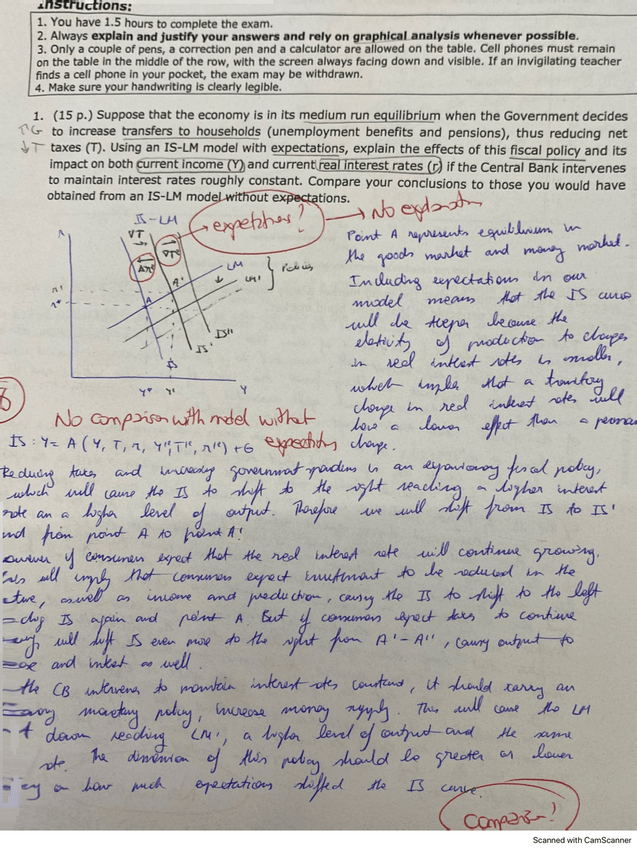 Instructions:
1. You have 1.5 hours to complete the exam.
2. Always explain and justify your answers and rely on graphical analysis whenever possible.
3. Only a couple of pens, a correction pen and a calculator are allowed on the table. Cell phones must remain
on the table in the middle of the row, with the screen always facing down and visible. If an invigilating teacher
finds a cell phone in your pocket, the exam may be withdrawn.
4. Make sure your handwriting is clearly legible.
1. (15 p.) Suppose that the economy is in its medium run equilibrium when the Government decides
↑G to increase transfers to households (unemployment benefits and pensions), thus reducing net
↓T taxes (T). Using an IS-LM model with expectations, explain the effects of this fiscal policy and its
impact on both current income (Y) and current real interest rates (r) if the Central Bank intervenes
to maintain interest rates roughly constant. Compare your conclusions to those you would have
obtained from an IS-LM model without expectations.
IS-LM
expectations? → No explanation
∇T
A'
A
LM
LM'
IS
IS'
IS''
r'
r*
Y*
Y'
Y
Point A represents equilibrium in
the goods market and money market.
Including expectations in our
model means that the IS curve
will be steeper because the
elasticity of production to changes
in real interest rates is smaller,
which implies that a transitory
change in real interest rates will
have a lower effect than a
change.
No comparison with model without
expectations
IS: Y = A (Y, T, r, Y'e, T'e, r'e) + G
Reducing taxes and increasing government spending is an expansionary fiscal policy,
which will cause the IS to shift to the right reaching a higher interest
rate an a higher level of output. Therefore we will shift from IS to IS'
and from point A to point A'.
However if consumers expect that the real interest rate will continue growing,
this will imply that consumers expect investment to be reduced in the
future, aswell as income and production, causing the IS to shift to the left
IS again and point A. But if consumers expect taxes to continue
will shift IS even more to the right from A'-A'', causing output to
and interest as well.
the CB intervenes to maintain interest rates constant, it should carry an
monetary policy, increase money supply. This will cause the LM
down reaching LM', a higher level of output and the same
rate. The dimension of this policy should be greater or lower
on how much expectations shifted the IS curve.
comparison!
Scanned with CamScanner